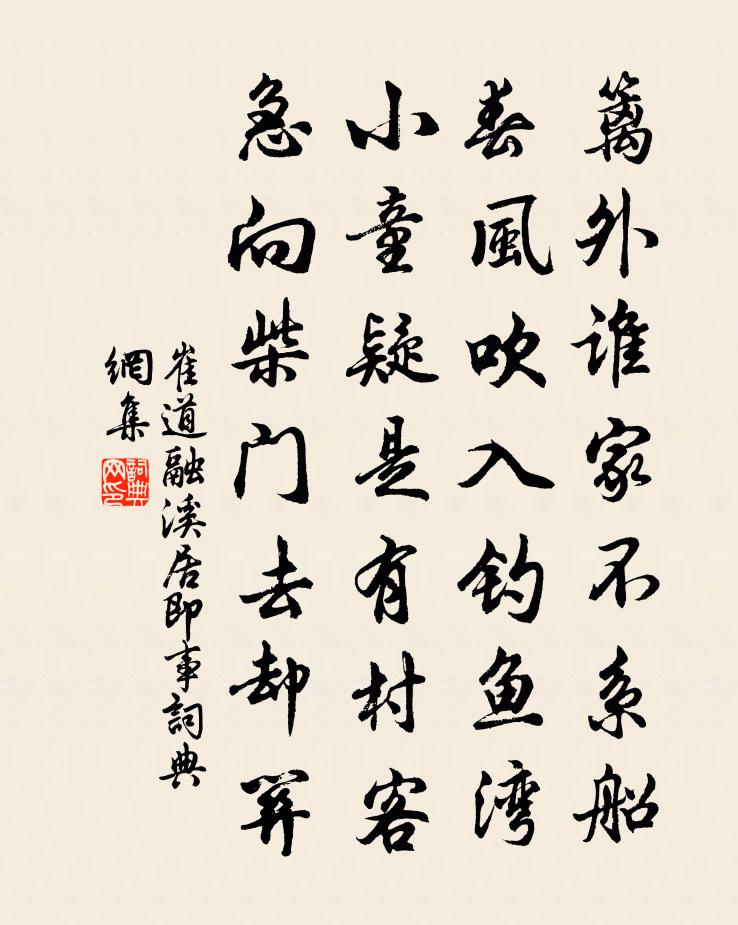 篱外谁家不系船
春風吹入钓鱼湾
小童疑是有村客
急向柴门去却关
崔道融溪居即事詞典
網集
詞典网印